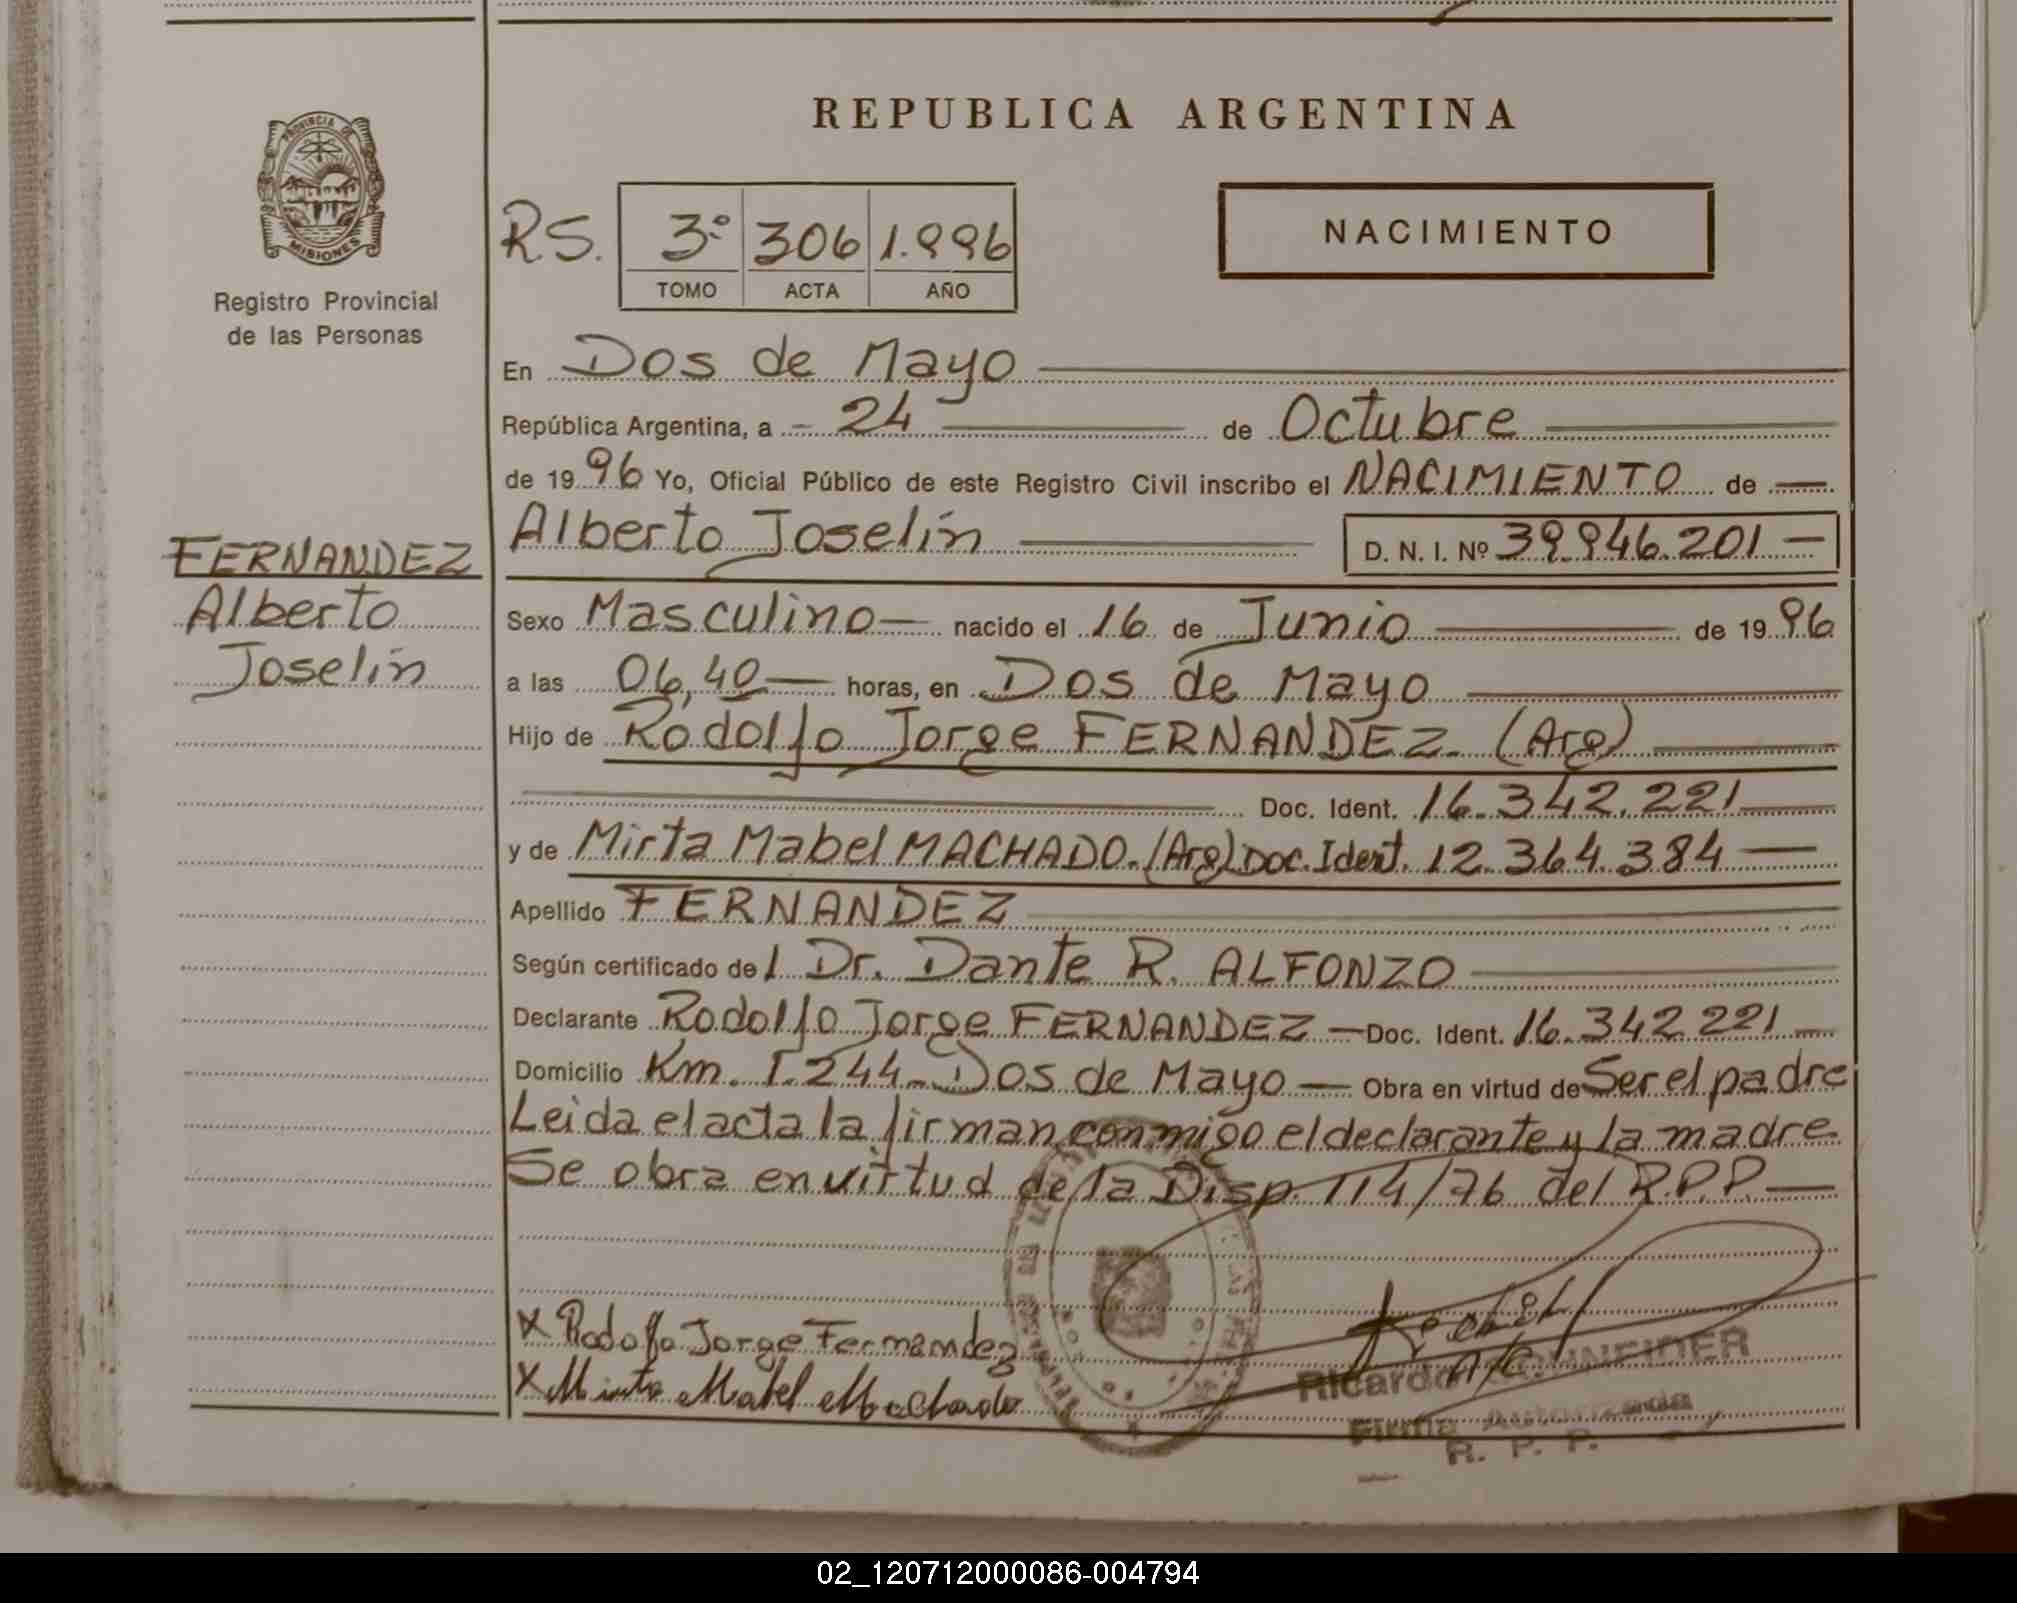 REPUBLICA ARGENTINA
PROVINCIA DE
MISIONES
Registro Provincial
de las Personas
R.S. 3º 306 1.996
TOMO ACTA AÑO
NACIMIENTO
En Dos de Mayo
República Argentina, a 24 de Octubre
de 1996 Yo, Oficial Público de este Registro Civil inscribo el NACIMIENTO de
Alberto Joselin D. N. I. Nº 39.946.201
FERNANDEZ
Alberto
Joselin
Sexo Masculino nacido el 16 de Junio de 1996
a las 06,40 horas, en Dos de Mayo
Hijo de Rodolfo Jorge FERNANDEZ. (Arg)
Doc. Ident. 16.342.221
y de Mirta Mabel MACHADO. (Arg) Doc. Ident. 12.364.384
Apellido FERNANDEZ
Según certificado del Dr. Dante R. ALFONZO
Declarante Rodolfo Jorge FERNANDEZ Doc. Ident. 16.342.221
Domicilio Km. 1.244 Dos de Mayo Obra en virtud de Ser el padre
Leida el acta la firman conmigo el declarante y la madre
Se obra en virtud de la Disp. 114/76 del R.P.P.
X Rodolfo Jorge Fernandez
X Mirta Mabel Machado
Ricardo
Firma Autorizada
R. P. P.
02_120712000086-004794